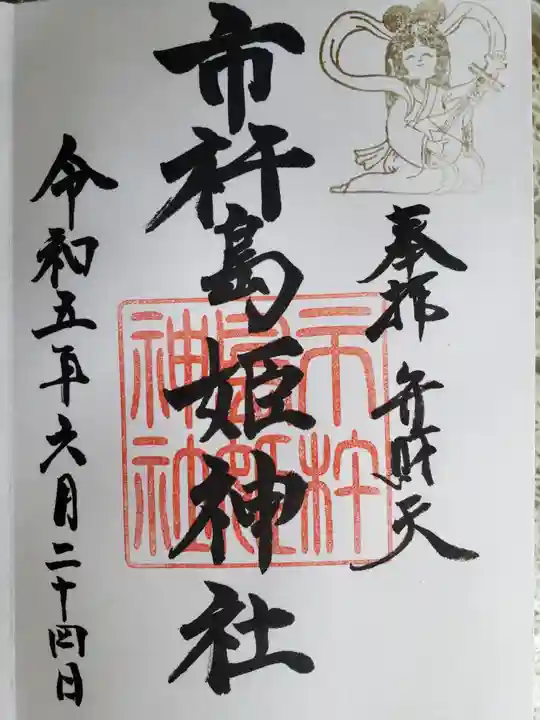 奉拝 弁財天
市杵島姫神社
市杵
島姫
神社
令和五年六月二十四日